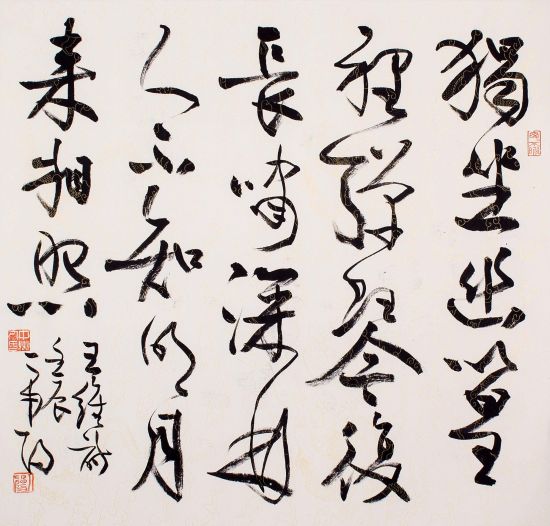 獨坐幽篁
裡彈琴復
長嘯深林
人不知明月
来相照
王維詩
壬辰